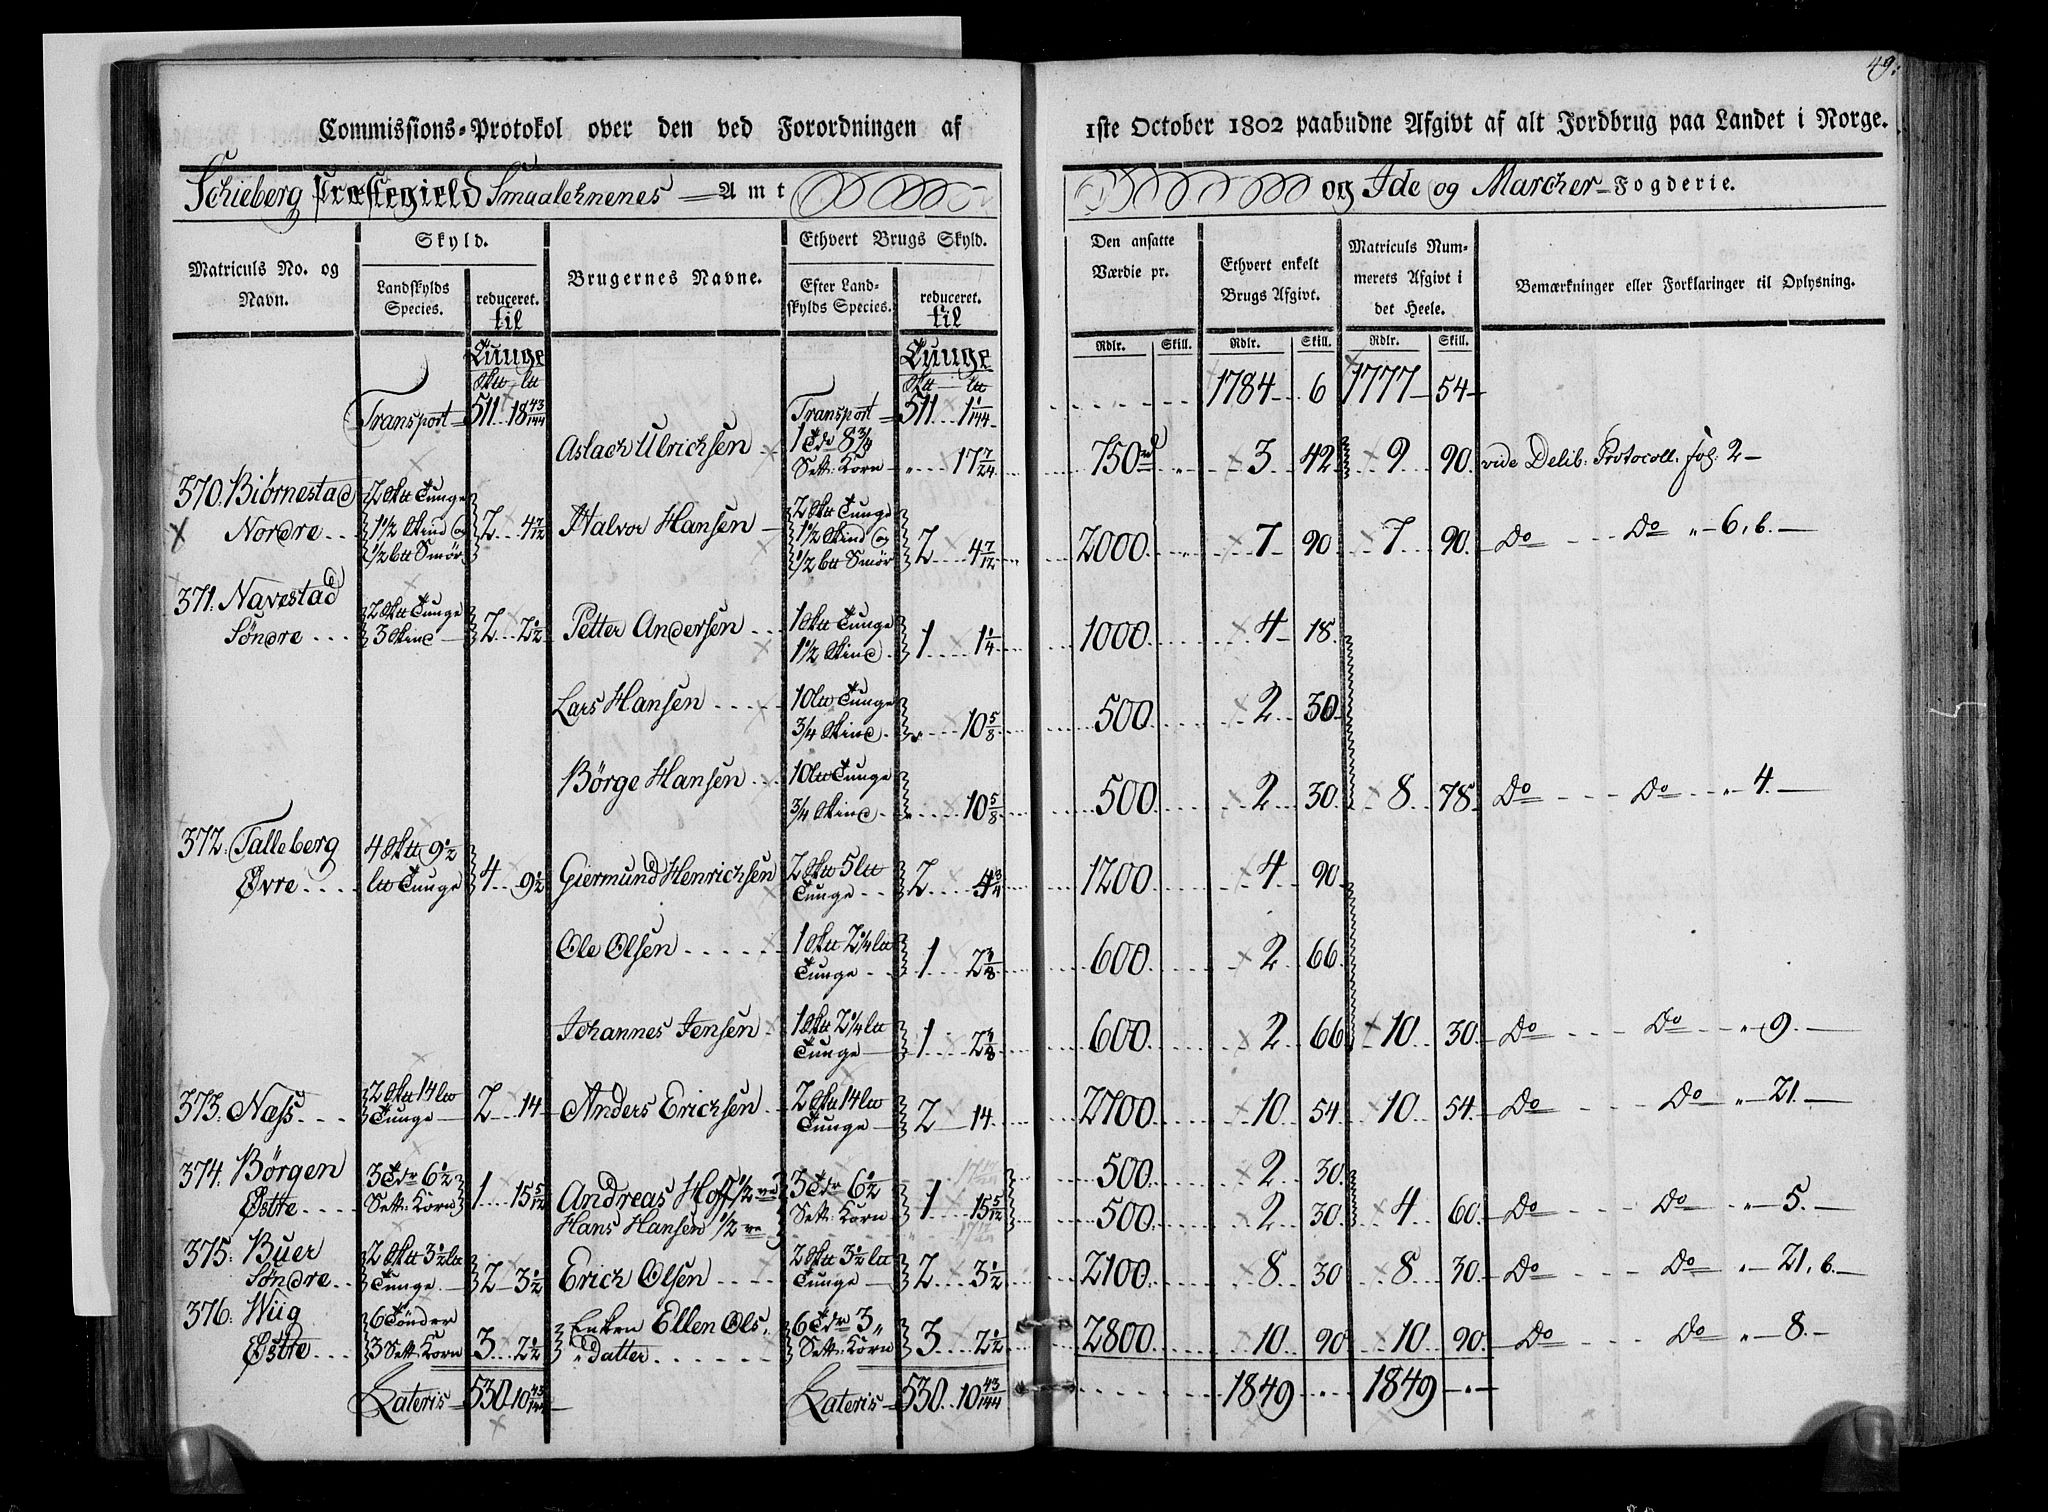 49.
Commissions-Protokol over den ved Forordningen af 1ste October 1802 paabudne Afgivt af alt Jordbrug paa Landet i Norge.
Schieberg Præstegield Smaalehnenes Amt og Ide og Marcher Fogderie.
Matriculs No. og Navn.
Skyld.
Landskylds Species.
reduceret. til
Brugernes Navne.
Ethvert Brugs Skyld.
Efter Landskylds Species.
reduceret. til
Den ansatte Værdie pr.
Ethvert enkelt Brugs Afgivt.
Matriculs Nummerets Afgivt i det Heele.
Bemærkninger eller Forklaringer til Oplysning.
Tunge Tunge Rdlr. Skill. Rdlr. Skill. Rdlr. Skill.
Transport 511 18 43/144 Transport 511 1 1/144 1784 6 1777 54
Aslach Ulrichsen 1 Tdr 8 3/4 Sett: Korn " 17 7/24 750 " 3 42 9 90 vide Delib. Protocoll. fol. 2
370. Biørnestad 2 Skt Tunge
Nordre 1 1/2 Skind og 1/2 btt Smør 2 4 7/12 Halvor Hansen 2 Skt Tunge 1 1/2 Skind og 1/2 btt Smør 2 4 7/12 2000 " 7 90 7 90 Do Do " 6, b.
371. Navestad
Søndre 2 Skt Tunge 3 Skind 2 2 1/2 Petter Andersen 1 Skt Tunge 1 1/2 Skind 1 1 1/4 1000 4 18
Lars Hansen 10 ltt Tunge 3/4 Skind " 10 5/8 500 2 30
Børge Hansen 10 ltt Tunge 3/4 Skind " 10 5/8 500 2 30 8 78 Do Do " 4
372. Talleberg 4 Skt 9 1/2
Øvre ltt Tunge 4 9 1/2 Giermund Henrichsen 2 Skt 5 ltt Tunge 2 4 3/4 1200 4 90
Ole Olsen 1 Skt 2 1/4 ltt Tunge 1 2 3/8 600 2 66
Johannes Jensen 1 Skt 2 1/4 ltt Tunge 1 2 3/8 600 2 66 10 30 Do Do " 9.
373. Næss 2 Skt 14 ltt Tunge 2 14 Anders Erichsen 2 Skt 14 ltt Tunge 2 14 2700 10 54 10 54 Do Do " 21.
374. Børgen 500 2 30
Østre 3 Tdr 6 1/2 Sett: Korn 1 15 5/12 Andreas Hoff 1/2 ve 3 Tdr 6 1/2 Sett: Korn 1 15 5/12 500 2 30 4 60 Do Do " 5.
Hans Hansen 1/2 ve
375. Buer
Søndre 2 Skt 3 1/2 ltt Tunge 2 3 1/2 Erich Olsen 2 Skt 3 1/2 ltt Tunge 2 3 1/2 2100 8 30 8 30 Do Do " 21, b.
376. Wiig 6 Tønder
Østre 3 Sett: Korn 3 2 1/2 Enken Ellen Ols datter 6 Tdr 3 " Sett: Korn 3 2 1/2 2800 10 90 10 90 Do Do " 8.
Lateris 530 10 43/144 Lateris 530 10 43/144 1849 1849